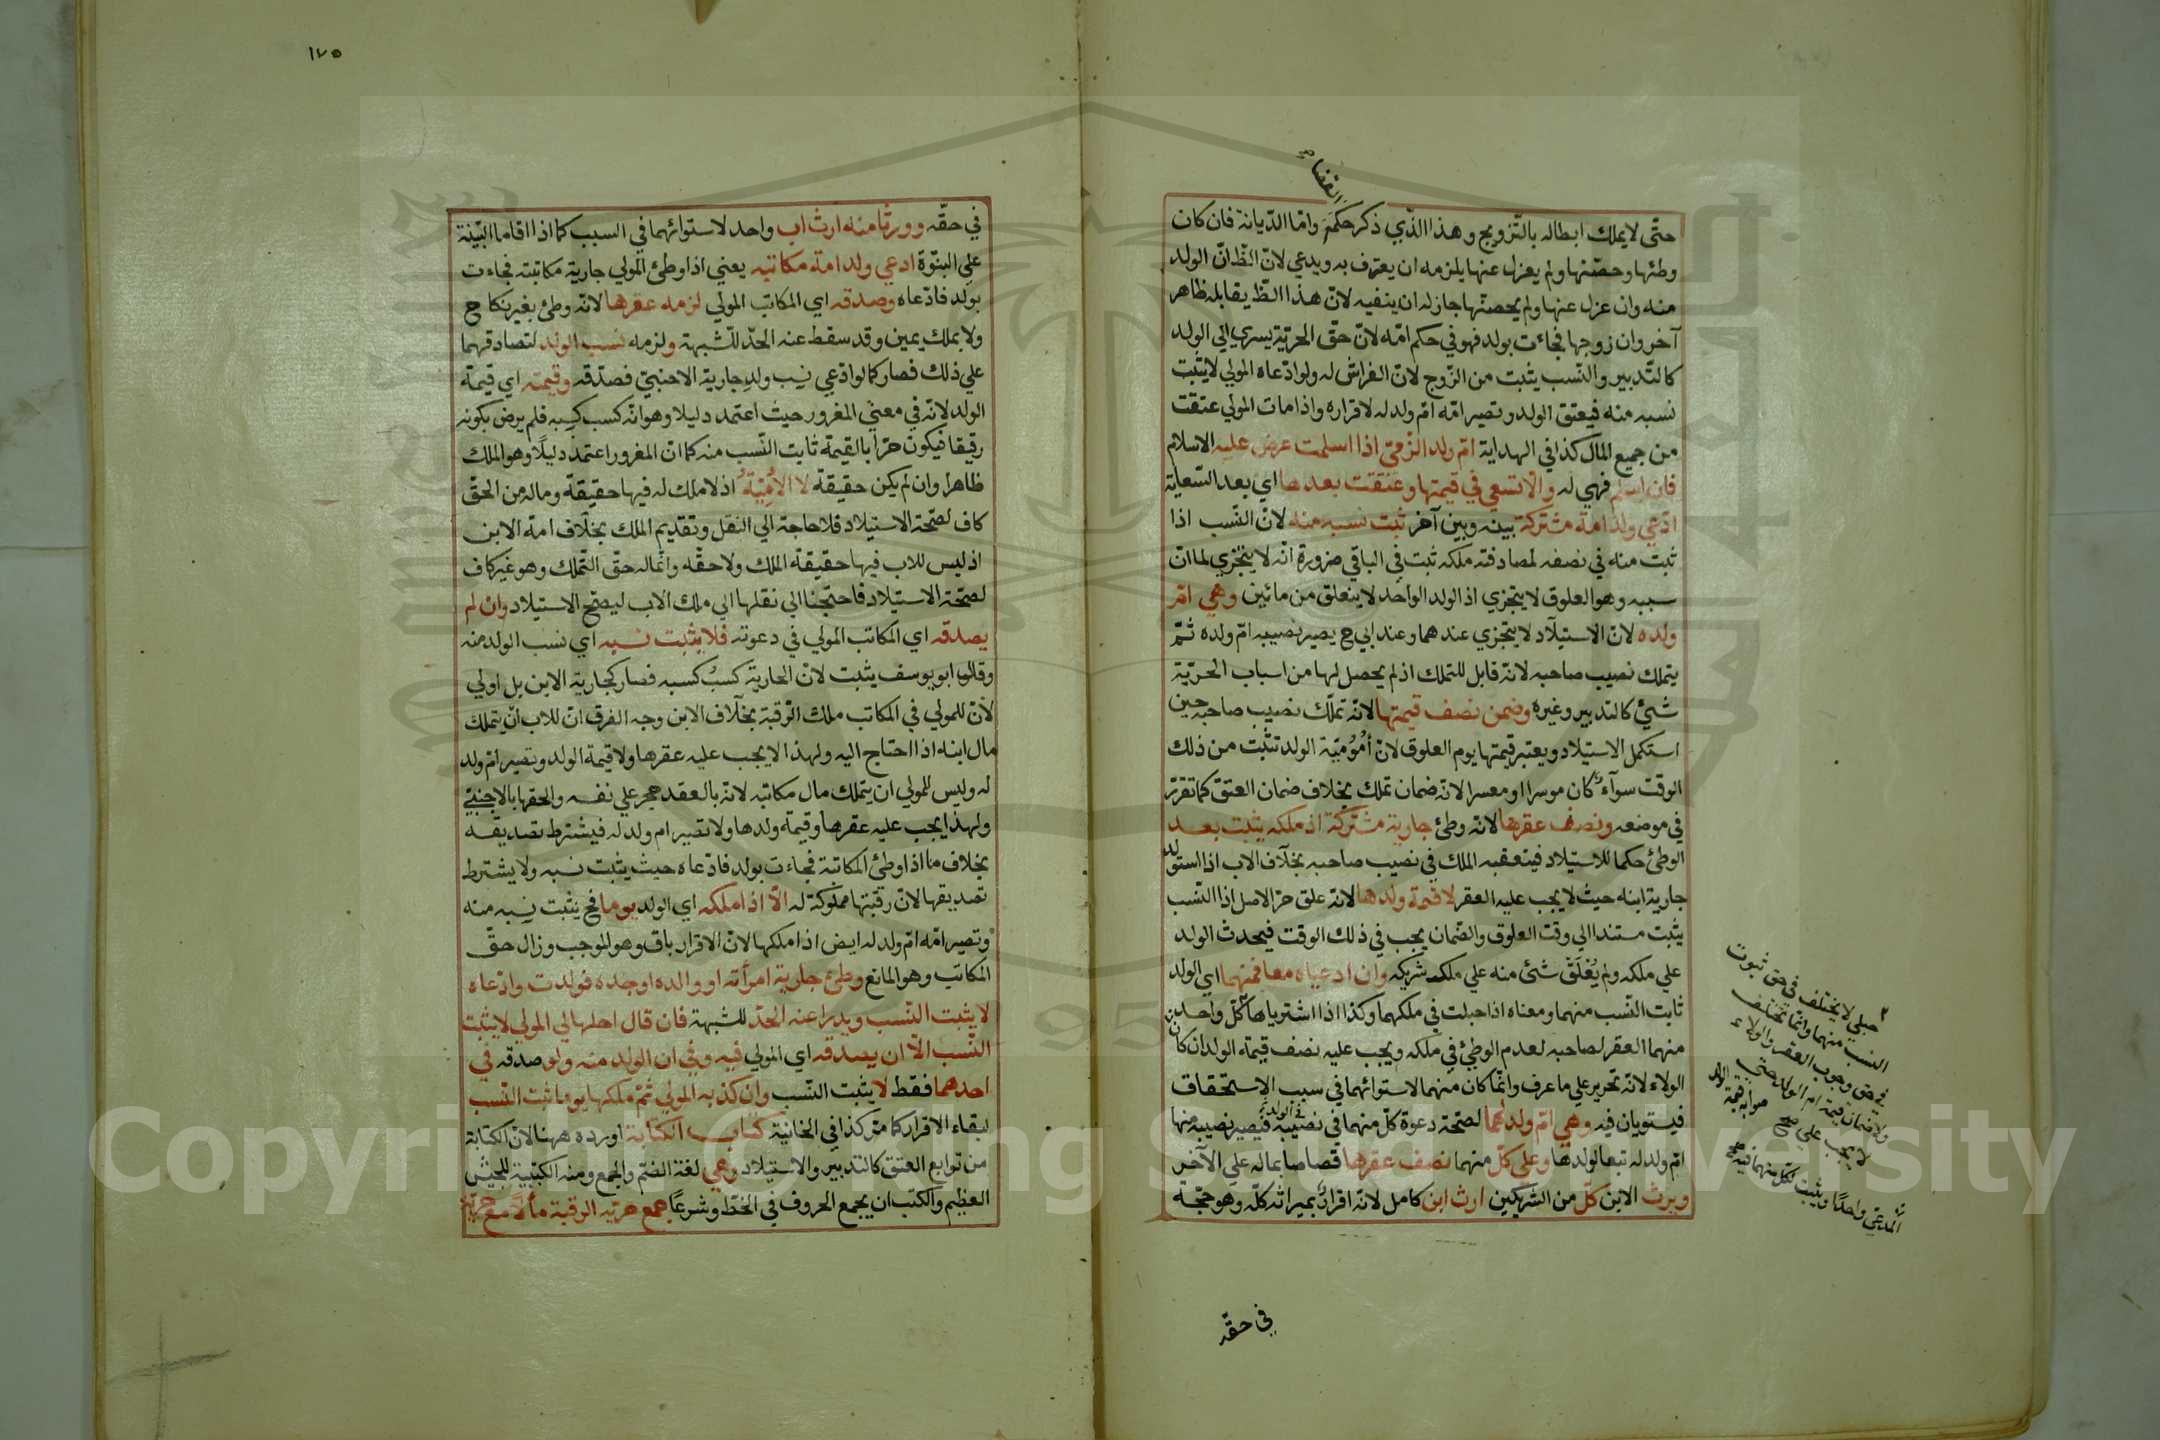 القضاء صح
حتّى لا يملك ابطاله بالتّزويج وهذا الذّي ذكر حكمَ وامّا الدّيانة فان كان
وطئها وحصّنها ولم يعزل عنها يلزمه ان يعترف به ويدعي لانّ الظّ انّ الولد
منه وان عزل عنها ولم يحصنّها جاز له ان ينفيه لانّ هذا الظّ يقابله ظاهر
آخر وان زوجها فجاءت بولد فهو في حكم امّه لانّ حقّ الحريّة يسري الي الولد
كالتّدبير والنّسب يثبت من الزّوج لانّ الفراش له ولو ادّعاه المولي لا يثبت
نسبه منه فيعتق الولد وتصير امّه امّ ولد له لاقراره واذا مات المولي عتقت
من جميع المال كذا في الهداية امّ ولد الذّميّ اذا اسلمت عرض عليه الاسلام
فان اسلم فهي له والّا تسعي في قيمتها وعتقت بعدها اي بعد السّعاية
ادّعي ولد امة مشتركة بينه وبين آخر ثبت نسبه منه لانّ النّسب اذا
ثبت منه في نصفه لمصادفته ملكه ثبت في الباقي ضرورة انّه لا يتجزي لما انّ
سببه وهو العلوق لا يتجزي اذ الولد الواحد لا ينعلق من مائين وهي امّ
ولده لانّ الاستيلاد لا يتجزي عندهما وعند ابي ح يصير نصيبه امّ ولده ثمّ
يتملك نصيب صاحبه لانّه قابل للتملك اذ لم يحصل لها من اسباب الحريّة
شيئ كالتدبير وغيره وضمن نصف قيمتها لانّه تملّك نصيب صاحبه حين
استكمل الاستيلاد ويعتبر قيمتها يوم العلوق لانّ أُمُوُميّة الولد تثبت من ذلك
الوقت سوآء كان موسرا او معسرا لانّه ضمان تملك بخلاف ضمان العتق كما تقرّر
في موضعه ونصف عقرها لانّه وطئ جارية مشتركة اذ ملكه يثبت بعد
الوطئ حكما للاستيلاد فيتعقبه الملك في نصيب صاحبه بخلاف الاب اذا استولد
جارية ابنه حيث لا يجب عليه العقر لا قيمة ولدها لانّه علق حرّ الاصل اذ النّسب
يثبت مستندا الي وقت العلوق والضّمان يجب في ذلك الوقت فيحدث الولد
علي ملكه ولم يُعْلَقْ شئ منه علي ملك شريكه وان ادعياه معا فمنهما اي الولد
ثابت النّسب منهما ومعناه اذا حبلت في ملكهما وكذا اذا اشترياها كلّ واحد
منهما العقر لصاحبه لعدم الوطئ في ملكه ويجب عليه نصف قيمة الولد ان كان
الولاء لانّه تحرير علي ما عرف وانّما كان منهما لاستوائهما في سبب الاستحقاق
فيستويان فيه وهي امّ ولد لهما لصحّة دعوة كلّ منهما في نصيبه في الولد فيصير نصيبه منها
امّ ولد له تبعا لولدها وعلى كلّ منهما نصف عقرها قصاصا بماله علي الآخر
ويرث الابن كلّ من الشريكين ارث ابن كامل لانّه اقرار بميراثه كلّه وهو حجّة
حبلي لا يختلف في حق ثبوت
النسب منهما وانّما يختلف
في حق وجوب العقر والولاء
وضمان قيمة ام الولد حتي
لا يجب علي صح صوابه قيمة الام
المدعيّ واحدًا ويثبت لكلّ منهما فيه صح
في حقّه
١٧٥
في حقّه وورثا منه ارث اب واحد لاستوائهما في السبب كما اذا اقاما البيّنة
على البنوّة ادعي ولد امة مكاتبه يعني اذا وطئ المولي جارية مكاتبته فجاءت
بولد فادّعاه وصدقه اي المكاتب المولي لزمه عقرها لانّه وطئ بغير نكاح
ولا بملك يمين وقد سقط عنه الحدّ للشّبهة ولزمه نسب الولد لتصادقهما
علي ذلك فصار كما لو ادّعي نسب ولد جارية الاجنبيّ فصدّقه وقيمته اي قيمة
الولد لانّه في معني المغرور حيث اعتمد دليلا وهو انّه كسب كسبه فلم يرض بكونه
رقيقا فيكون حرّا بالقيمة ثابت النّسب منه كما انّ المغرور اعتمد دليلًا وهو الملك
ظاهرا وان لم يكن حقيقة لا الاُميّةُ اذ لا ملك له فيها حقيقة وماله من الحقّ
كاف لصحّة الاستيلاد فلا حاجة الي النقل وتقديم الملك بخلاف امة الابن
اذ ليس للاب فيها حقيقة الملك ولا حقّه وانّما له حقّ التّملك وهو غير كاف
لصحّة الاستيلاد فاحتجنا الي نقلها الي ملك الاب ليصحّ الاستيلاد وان لم
يصدقه اي المكاتب المولي في دعوته فلا يثبت نسبه اي نسب الولد منه
وقال ابو يوسف يثبت لانّ الجارية كسبُ كسبه فصار كجارية الابن بل اولي
لانّ للمولي في المكاتب ملك الرّقبة بخلاف الابن وجه الفرق انّ للاب ان يتملك
مال ابنه اذا احتاج اليه ولهذا لا يجب عليه عقرها ولا قيمة الولد وتصير امّ ولد
له وليس للمولي ان يتملك مال مكاتبه لانّه بالعقد حجر علي نفسه والحقها بالاجنبيّ
ولهذا يجب عليه عقرها وقيمة ولدها ولا تصير ام ولد له فيشترط تصديقه
بخلاف ما اذا وطئ المكاتبة فجاءت بولد فادّعاه حيث يثبت نسبه ولا يشترط
تصديقها لانّ رقبتها مملوكة له الّا اذا ملكه اي الولد يوما فح يثبت نسبه منه
وتصير امّه امّ ولد له ايض اذا ملكها لانّ الاقرار باق وهو الموجب وزال حقّ
المكاتب وهو المانع وطئ جارية امرأته او والده او جده فولدت وادّعاه
لا يثبت النّسب ويدرا عنه الحدّ للشبهة فان قال احلها لي المولي لا يثبت
النّسب الّا ان يصدقه اي المولي فيه وفي ان الولد منه ولو صدقه في
احدهما فقط لا يثبت النّسب وان كذبه المولي ثمّ ملكها يوما ثبت النّسب
لبقاء الاقرار كما مرّ كذا في الخانية كتاب الكتابة اورده ههنا لانّ الكتابة
من توابع العتق كالتدبير والاستيلاد وهي لغة الضّم والجمع ومنه الكتيبة للجيش
العظيم والكتب ان يجمع الحروف في الخطّ وشرعًا جمع حريّة الرقبة مآلًا مع حريّة